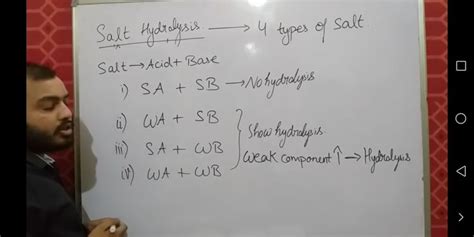 Salt Hydrolysis → 4 types of Salt
Salt → Acid + Base
i) SA + SB → No hydrolysis
(ii) WA + SB
iii) SA + WB
(iv) WA + WB
Show hydrolysis
Weak component ↑ → Hydrolysis